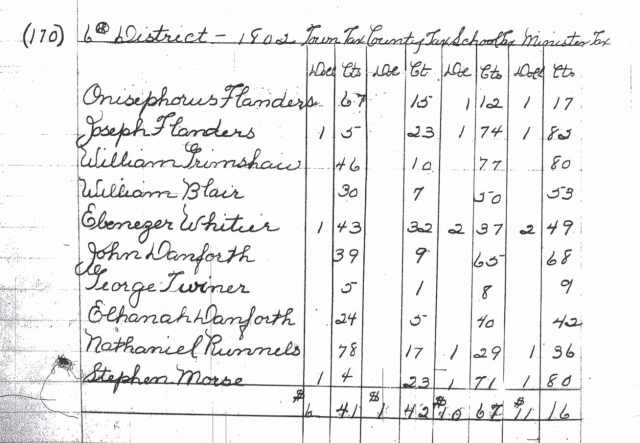 (170) 6th District - 1802 Town Tax County Tax School Tax Minister Tax
Doll Cts Dol Ct Dol Cts Doll Cts
Onisephorus Flanders 67 15 1 12 1 17
Joseph Flanders 1 5 23 1 74 1 82
William Grimshaw 46 10 77 80
William Blair 30 7 50 53
Ebenezer Whitier 1 43 32 2 37 2 49
John Danforth 39 9 65 68
George Turner 5 1 8 9
Elhanah Danforth 24 5 40 42
Nathaniel Runnels 78 17 1 29 1 36
Stephen Morse 1 4 23 1 71 1 80
$6 41 $1 42 $10 67 $11 16